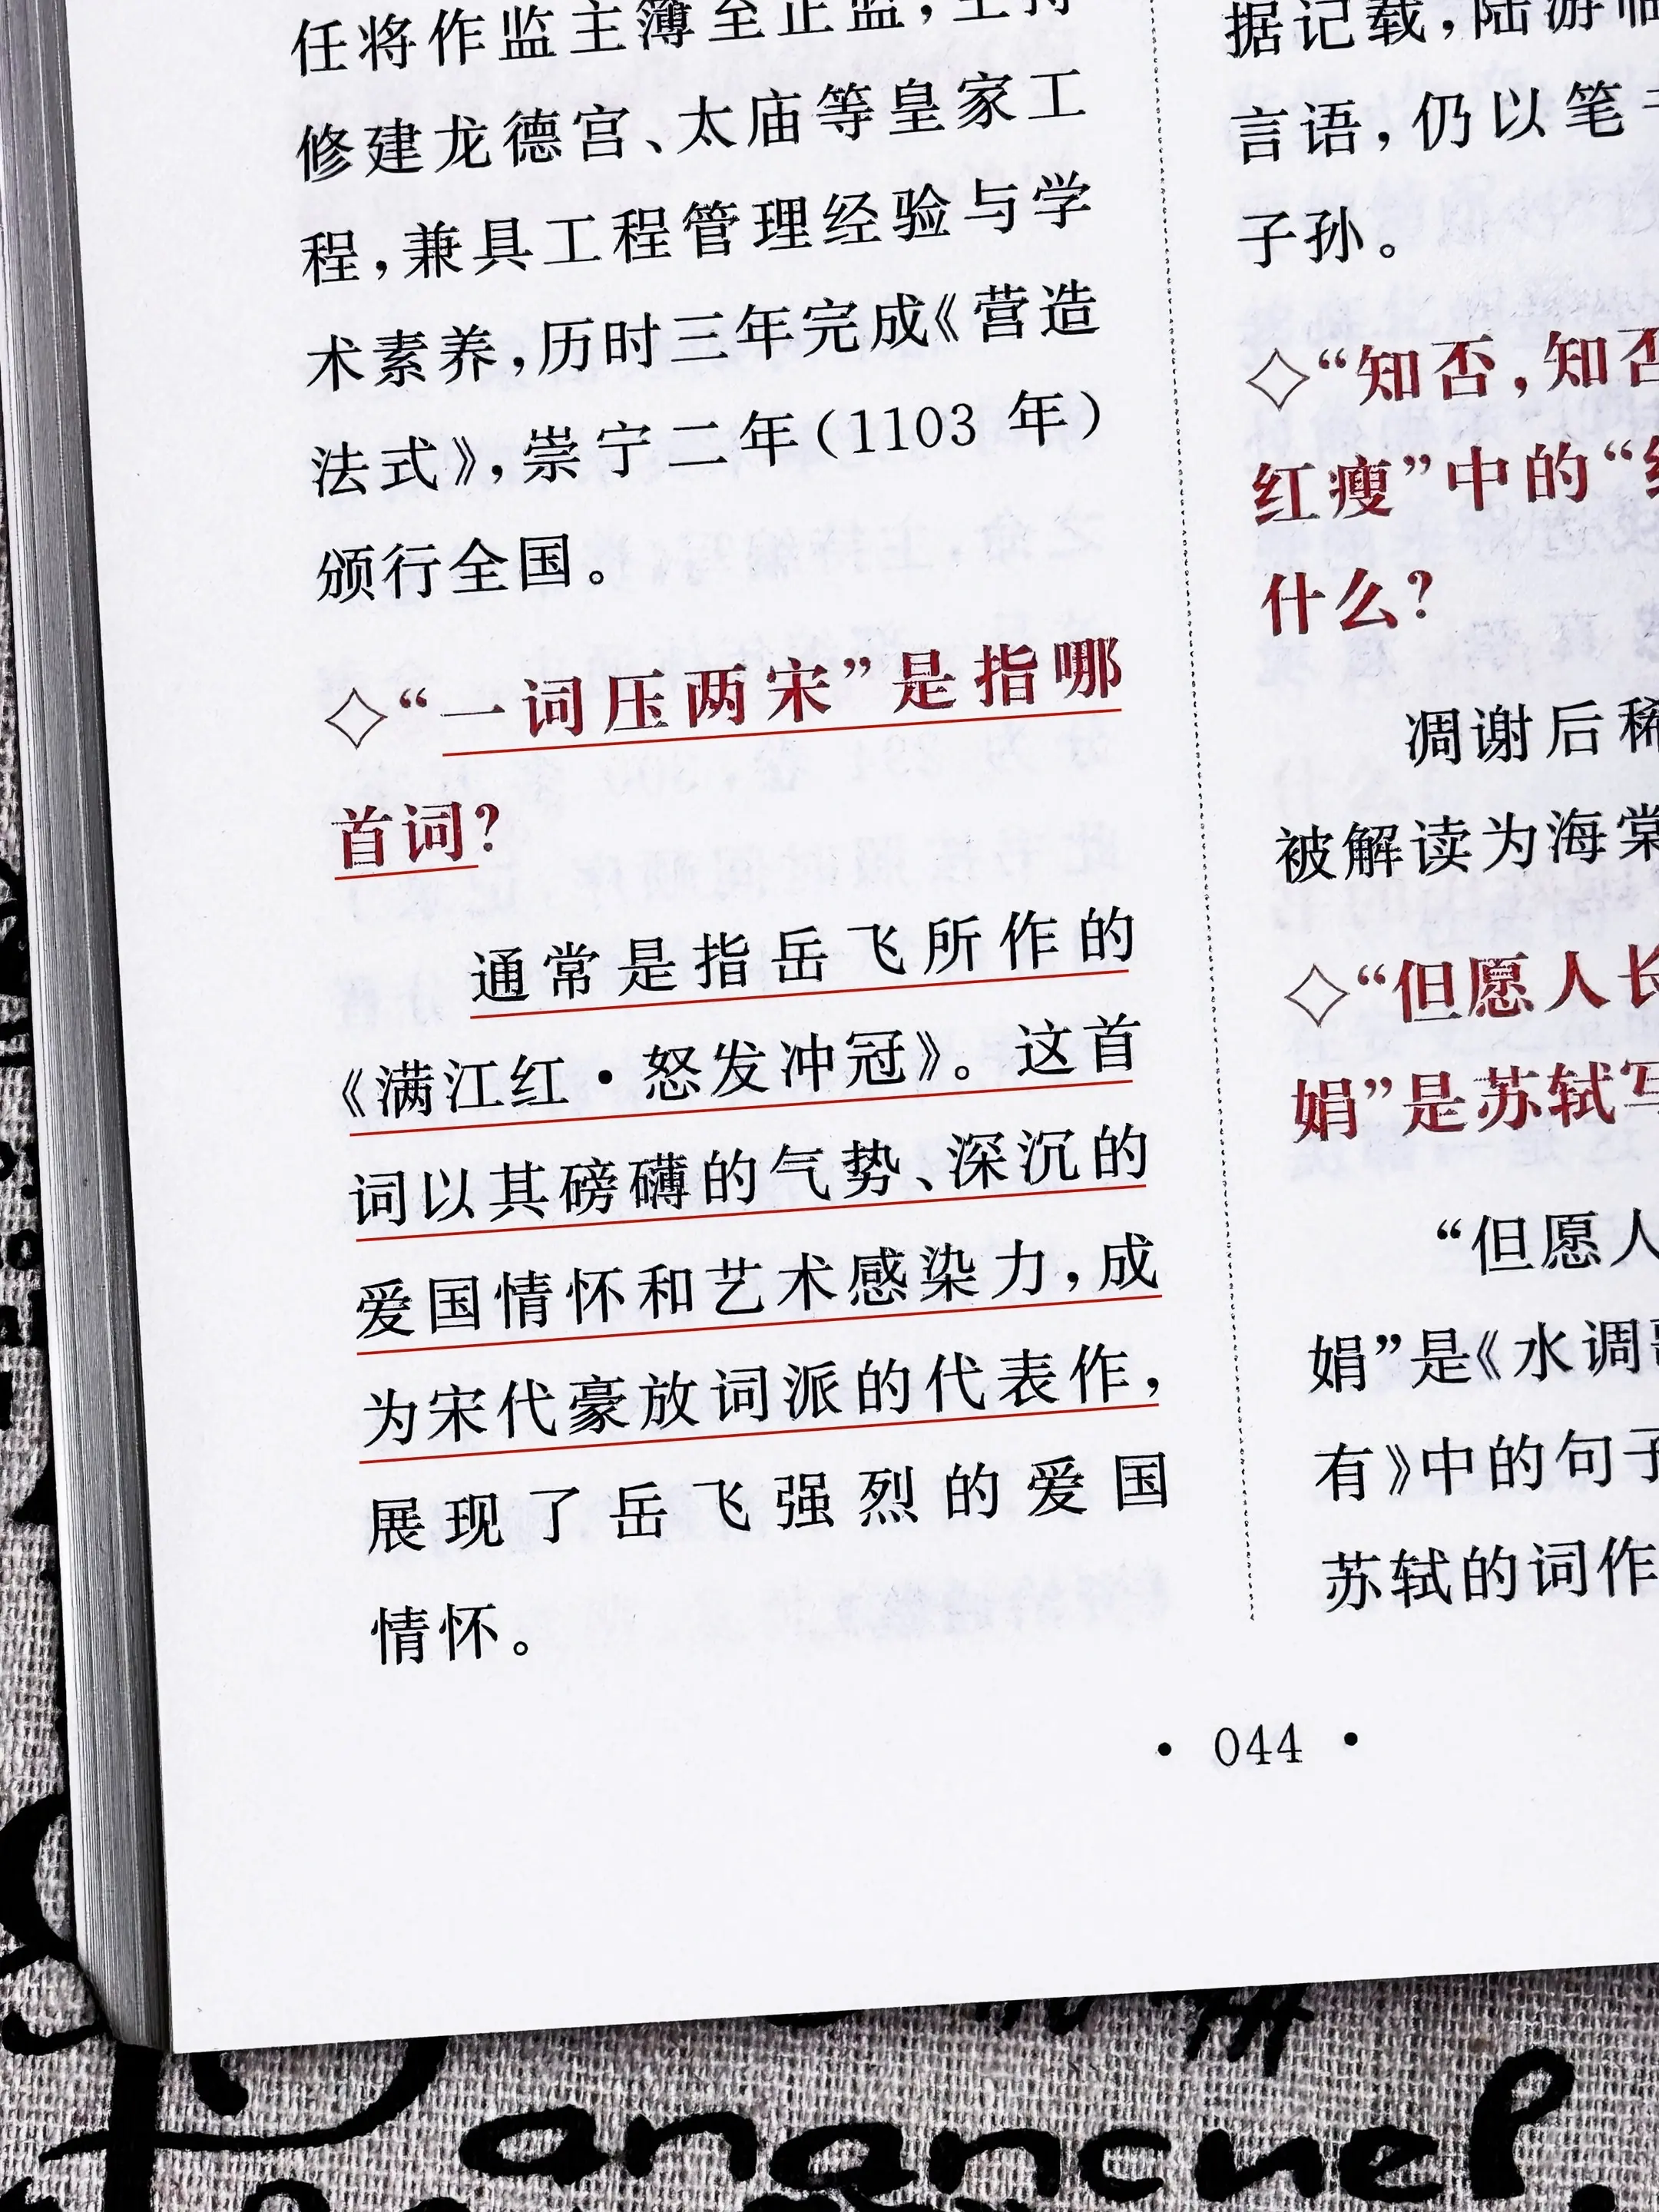 任将作监主簿至正监,主持
修建龙德宫、太庙等皇家工
程,兼具工程管理经验与学
术素养,历时三年完成《营造
法式》,崇宁二年(1103 年)
颁行全国。
◇“一词压两宋”是指哪
首词?
通常是指岳飞所作的
《满江红·怒发冲冠》。这首
词以其磅礴的气势、深沉的
爱国情怀和艺术感染力,成
为宋代豪放词派的代表作,
展现了岳飞强烈的爱国
情怀。
据记载,陆游临
言语,仍以笔
子孙。
◇“知否,知否
红瘦”中的“
什么?
凋谢后稀
被解读为海棠
◇“但愿人长
娟”是苏轼写
“但愿人
娟”是《水调歌
有》中的句子
苏轼的词作
· 044 ·